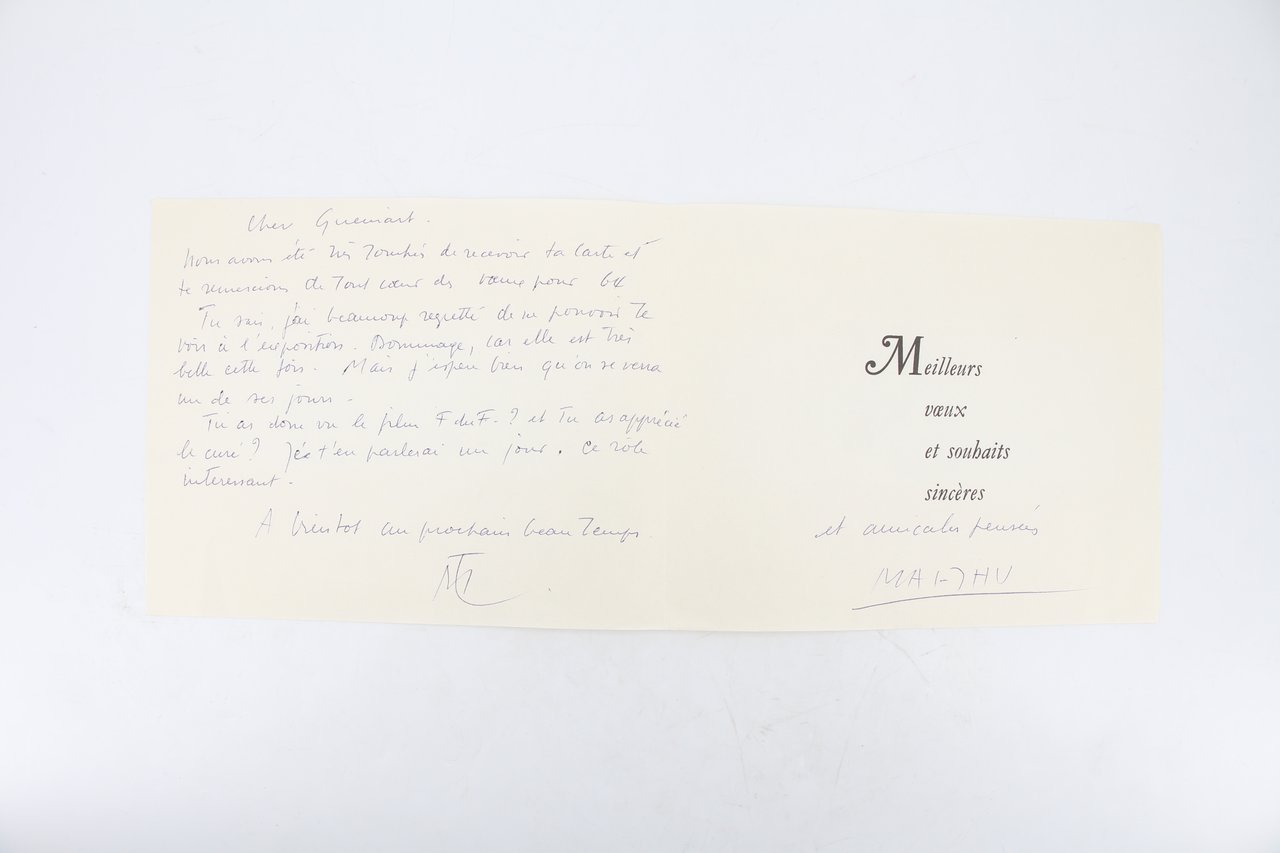 Cher
Nous avons été très touchés de recevoir ta carte et
te remercions de tout cœur des vœux pour 64
Tu sais, j'ai beaucoup regretté de ne pouvoir te
voir à l'exposition. Dommage, car elle est très
belle cette fois. Mais j'espère bien qu'on se verra
un de ses jours.
Tu as donc vu le film F du F.? et tu as apprécié
le curé? Je t'en parlerai un jour. Ce rôle
interessant.
A bientot au prochain beau temps
Meilleurs
vœux
et souhaits
sincères
et amicales pensées